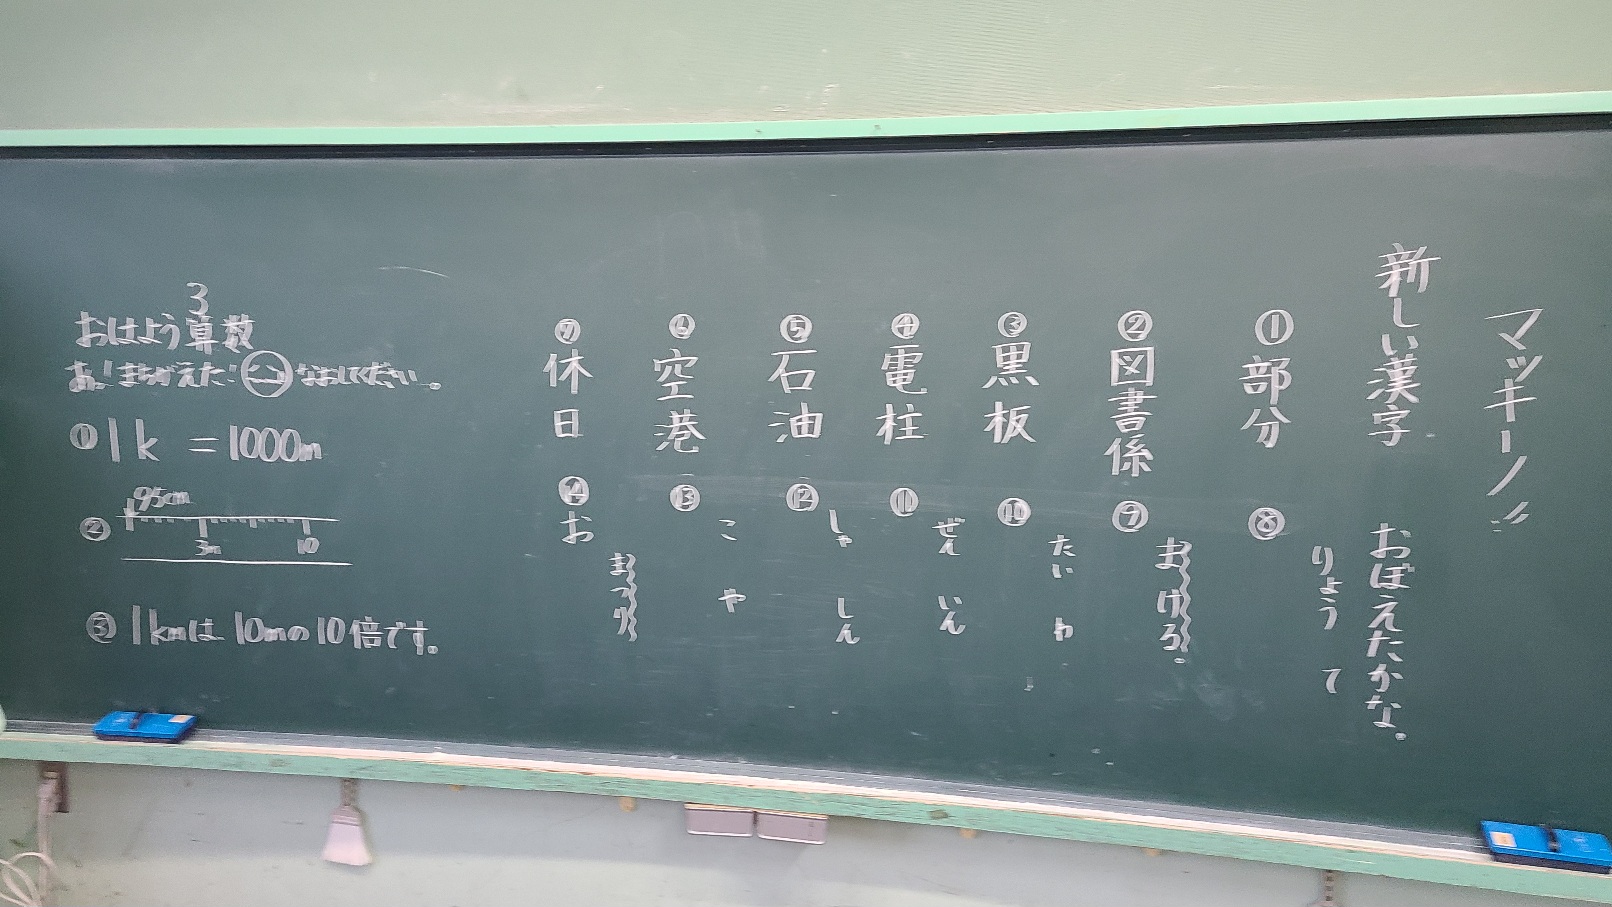 マッキーノ!!
新しい漢字 おぼえたかな。
①部分
②図書係
③黒板
④電柱
⑤石油
⑥空港
⑦休日
⑧りょうて
⑨まけろ。
⑩たいわ
⑪ぜんいん
⑫しゃしん
⑬こや
⑭おまつり
3
おはよう算数
あ!まちがえた!なおしてください。
① 1k = 1000m
② 95cm
3m 10
③ 1kmは10mの10倍です。